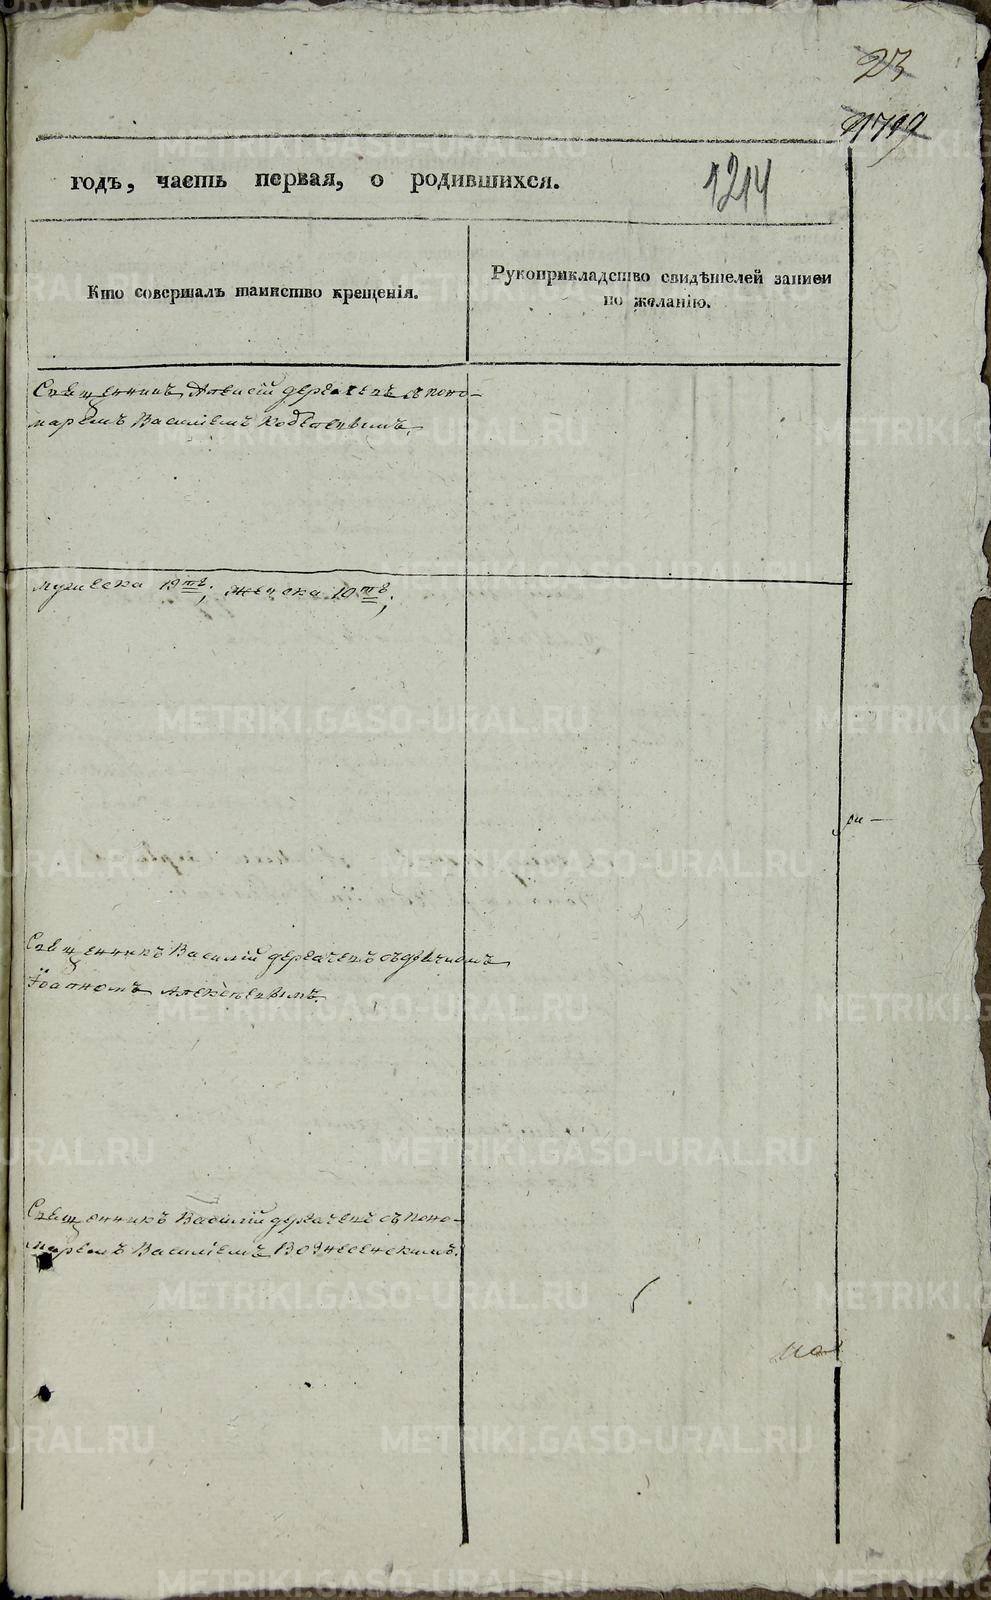 23
1719
1214
годъ, часть первая, о родившихся.
Кто совершалъ таинство крещенія.
Рукоприкладство свидѣтелей записи
по желанію.
Священникъ Алексій Дергачевъ съ поно-
маремъ Василіемъ
мужеска 19тъ, женска 10тъ;
Священникъ Василій Дергачевъ съ дьячкомъ
Іоанномъ Алексѣевымъ.
Священникъ Василій Дергачевъ съ поно-
маремъ Василіемъ Вознесенскимъ.
METRIKI.GASO-URAL.RU